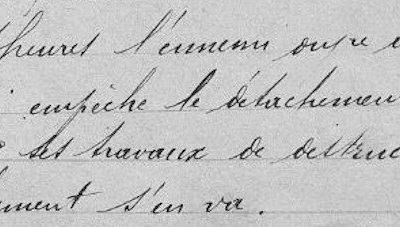 heures l'ennemi ouvre
empêche le détachemen
ses travaux de destruc
ment s'en va.